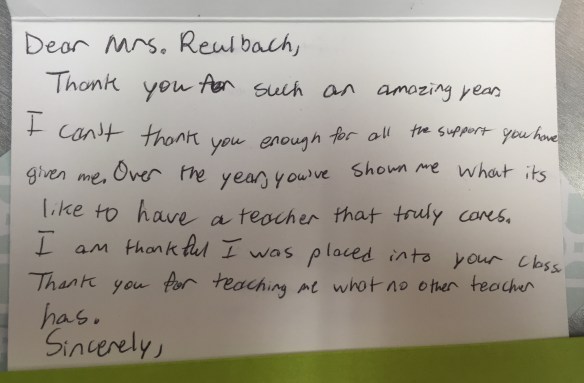 Dear Mrs. Reulbach,
Thank you for such an amazing year.
I can't thank you enough for all the support you have
given me. Over the year, you've shown me what its
like to have a teacher that truly cares.
I am thankful I was placed into your class.
Thank you for teaching me what no other teacher
has.
Sincerely,